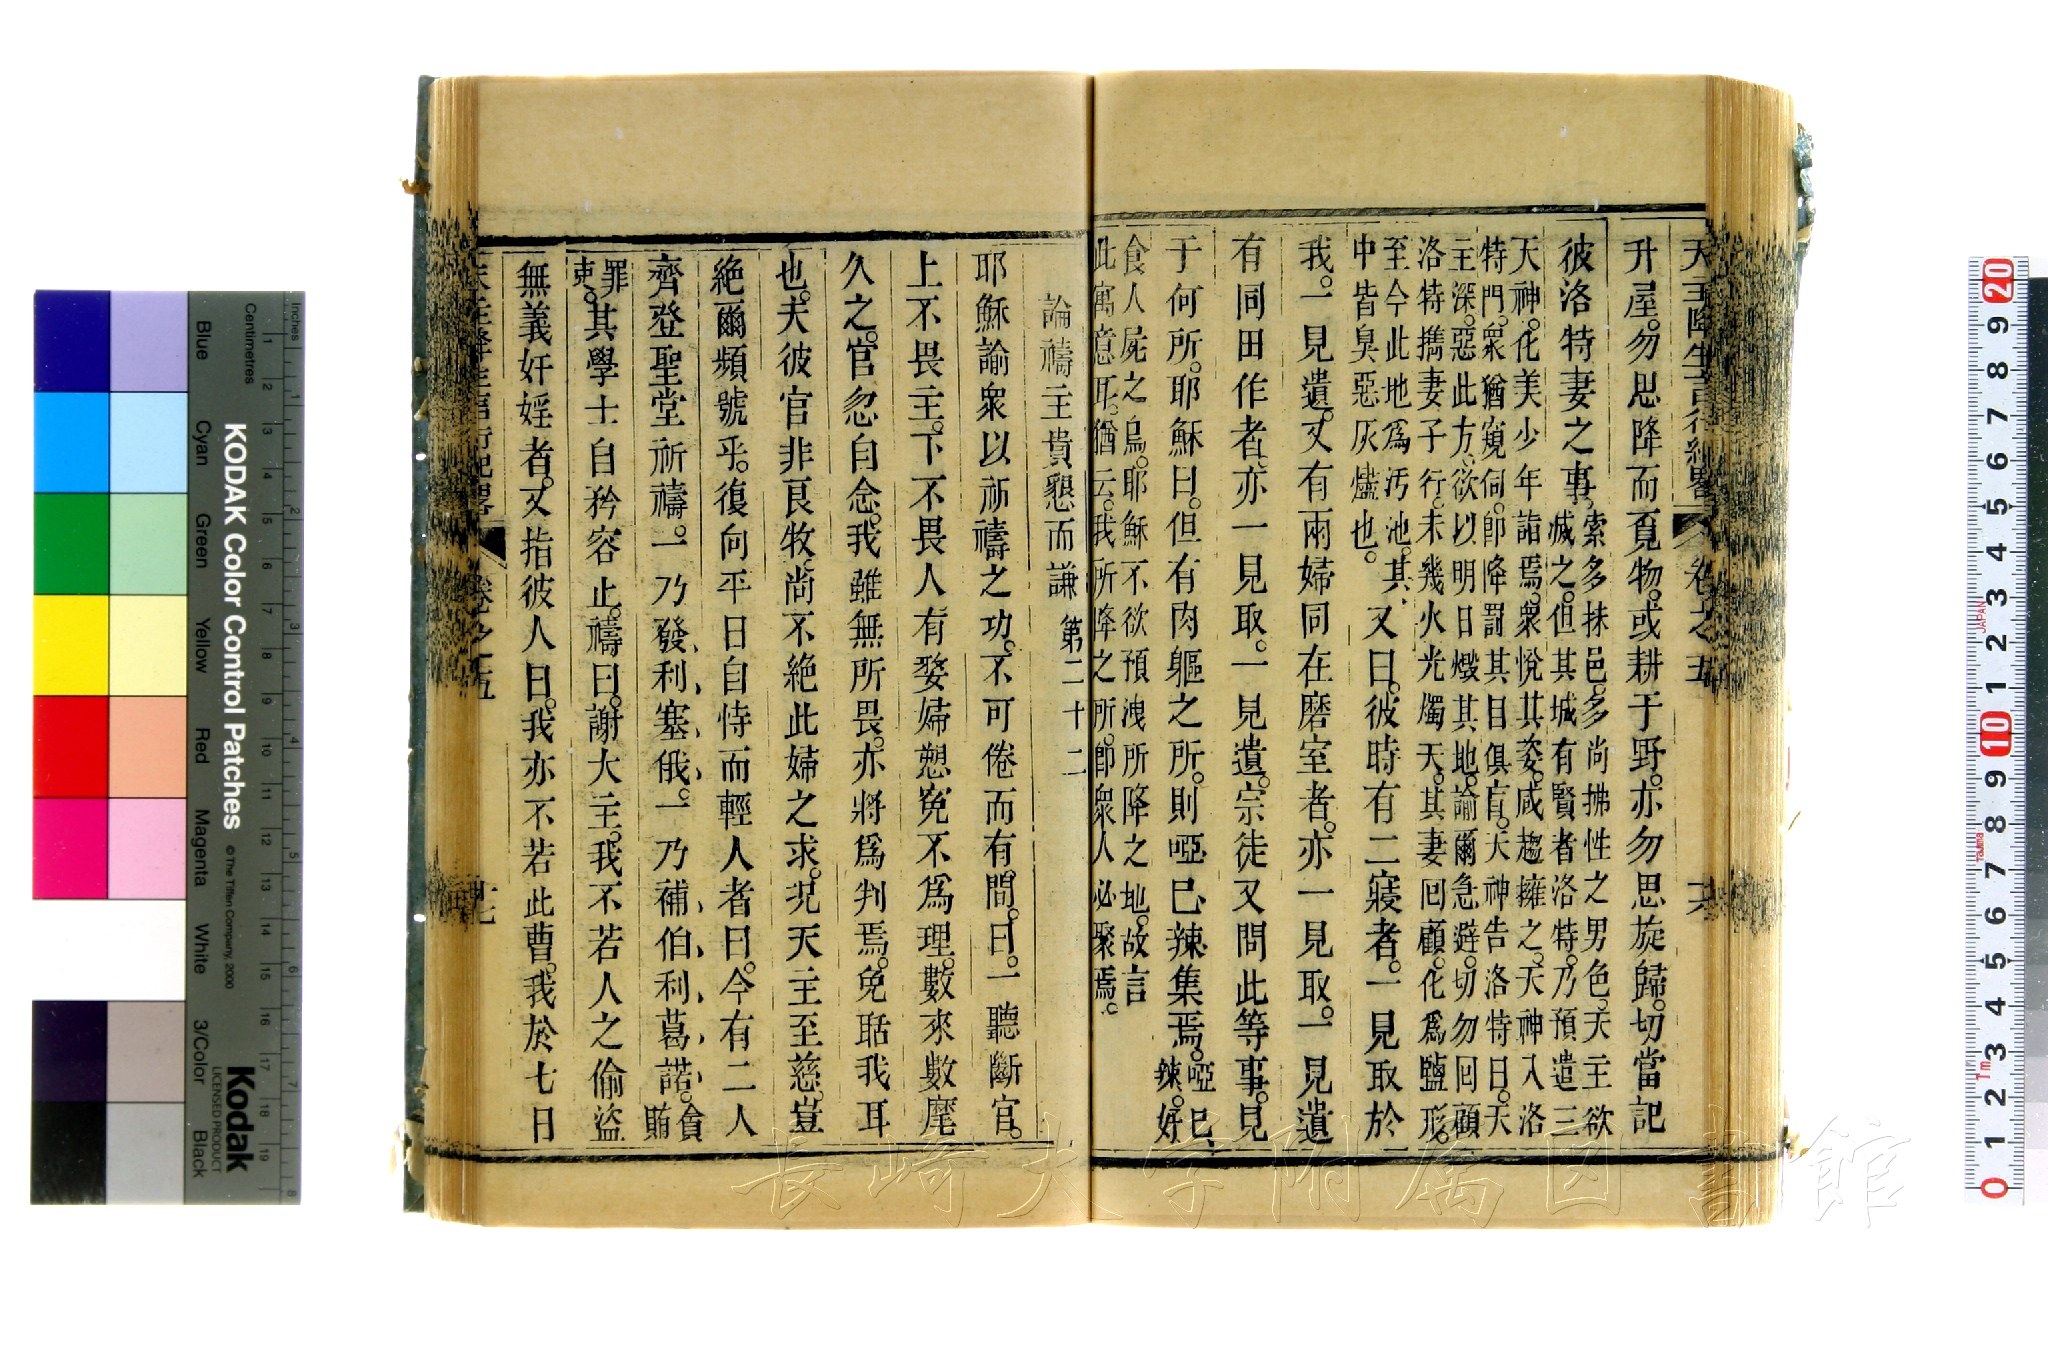 天主降生言行紀畧 卷之五 十六
升屋。勿思降而覔物。或耕于野。亦勿思旋歸。切當記
彼洛特妻之事。
索多抹邑。多尚拂性之男色。天主欲
滅之。但其城有賢者洛特。乃預遣三
天神。化美少年詣焉。衆悅其姿。咸趨擁之。天神入洛
特門。衆猶窺伺。卽降罰其目俱盲。天神告洛特曰。天
主深惡此方。欲以明日燬其地。諭爾急避。切勿回顧
洛特擕妻子行。未幾火光燭天。其妻回顧。化爲鹽形。
至今此地爲汚池。其
中皆臭惡灰爐也。
又曰。彼時有二寢者。一見取於
我。一見遺。又有兩婦同在磨室者。亦一見取。一見遺
有同田作者。亦一見取。一見遺。宗徒又問此等事。見
于何所。耶穌曰。但有肉軀之所。則啞巳辣集焉。
啞巳
辣。好
食人屍之鳥。耶穌不欲預洩所降之地。故言
此寓意耳。猶云。我所降之所。卽衆人必聚焉。
論禱主貴懇而謙 第二十二
耶穌諭衆以祈禱之功。不可倦而有間。曰。一聽斷官。
上不畏主。下不畏人。有嫠婦愬寃不爲理。數來數麾
久之。官忽自念。我雖無所畏。亦將爲判焉。免聒我耳
也。夫彼官非良牧。尚不絶此婦之求。況天主至慈。豈
絶爾頻號乎。復向平日自恃而輕人者曰。今有二人
齊登聖堂祈禱。一乃發利塞俄。一乃補伯利葛諾。
貪
賄
罪
吏。
其學士自矜容止。禱曰。謝大主。我不若人之偷盜
無義奸婬者。又指彼人曰。我亦不若此曹。我於七日
天主降生言行紀畧 卷之五 十七
KODAK Color Control Patches
© The Tiffen Company, 2000
Kodak
LICENSED PRODUCT
Inches
Centimetres
Blue
Cyan
Green
Yellow
Red
Magenta
White
3/Color
Black
長崎大学附属図書館